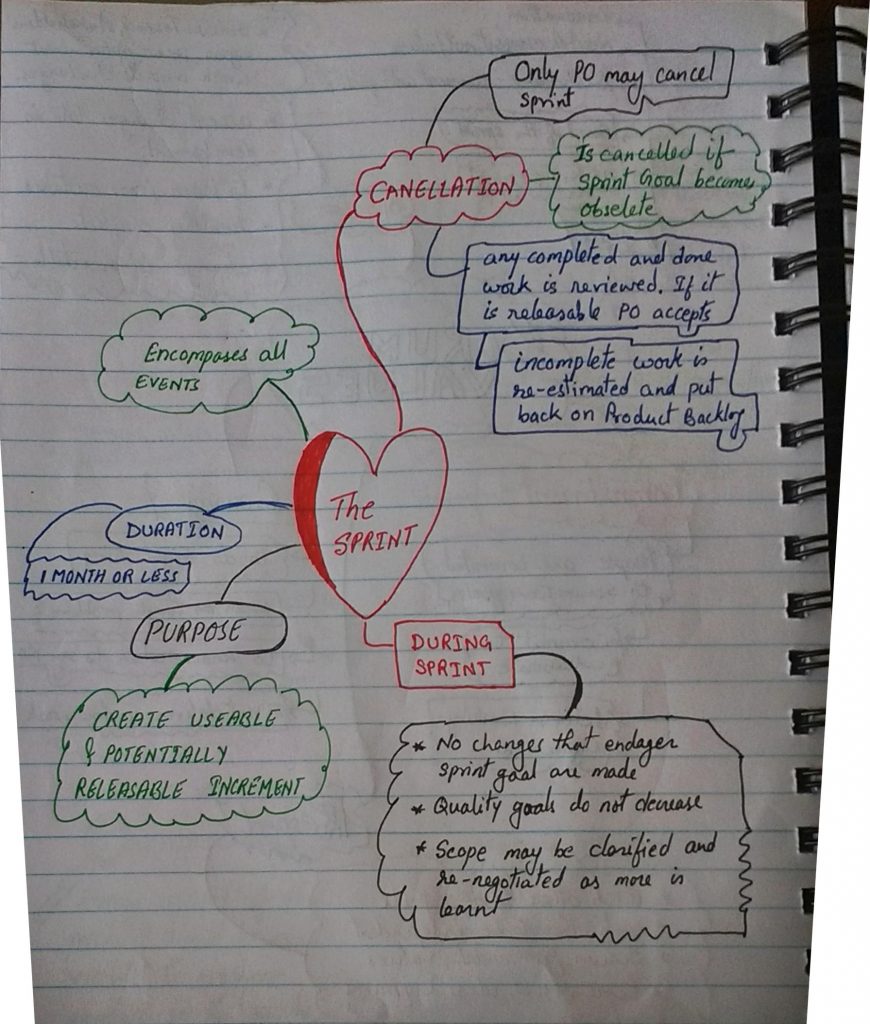 Only PO may cancel
sprint
CANELLATION
Is cancelled if
Sprint Goal become
obselete
any completed and done
work is reviewed. If it
is releasable PO accepts
incomplete work is
re-estimated and put
back on Product Backlog
Encompases all
EVENTS
The
SPRINT
DURATION
1 MONTH OR LESS
PURPOSE
CREATE USEABLE
& POTENTIALLY
RELEASABLE INCREMENT
DURING
SPRINT
* No changes that endager
sprint goal are made
* Quality goals do not decrease
* Scope may be clarified and
re-negotiated as more is
learnt